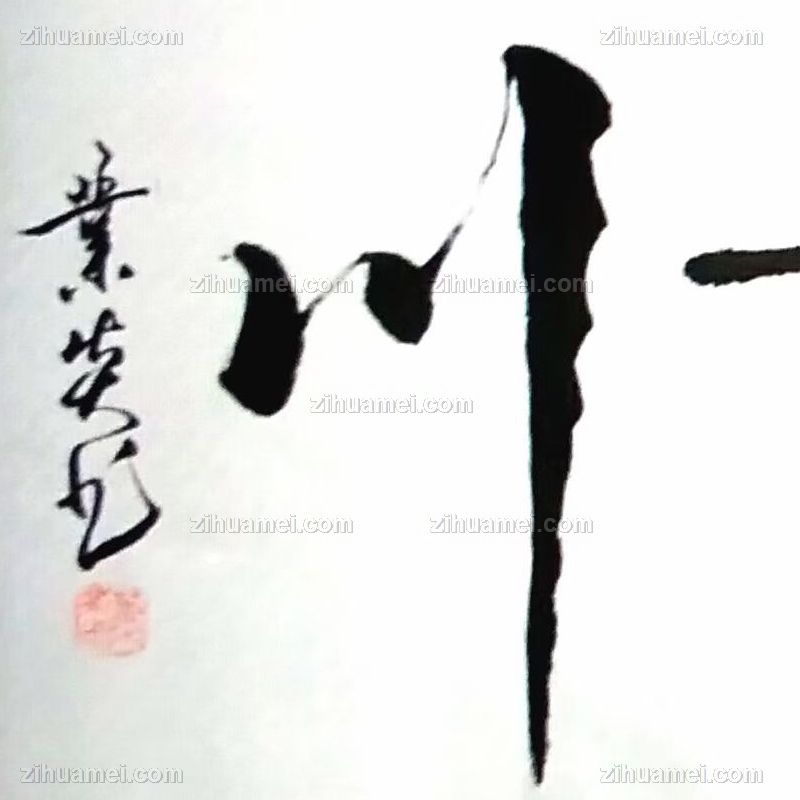 川
業炎书
zihuamei.com zihuamei.com
zihuamei.com zihuamei.com
zihuamei.com
zihuamei.com zihuamei.com
zihuamei.com zihuamei.com